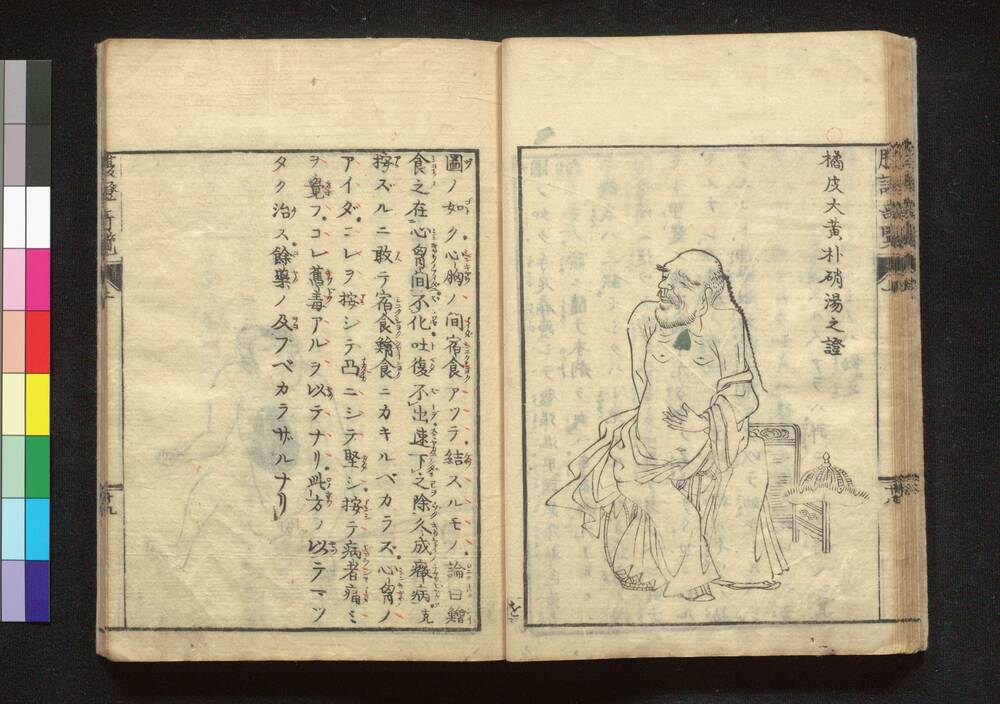 橘皮大黄朴硝湯之證
圖ノ如ク心胸ノ间宿食アツラ結スルモノ論曰鱠
食之在心胷间不化吐復不出速下之除久成癥病克
按ズルニ敢テ宿食鱠食ニカキルベカラズ心胷ノ
アイダコレヲ按シテ凸ニシテ堅シ按テ病者痛ミ
ヲ覺フコレ舊毒アルヲ以テナリ此方ノ以テマツ
タク治ス餘藥ノ及ブベカラザルナリ